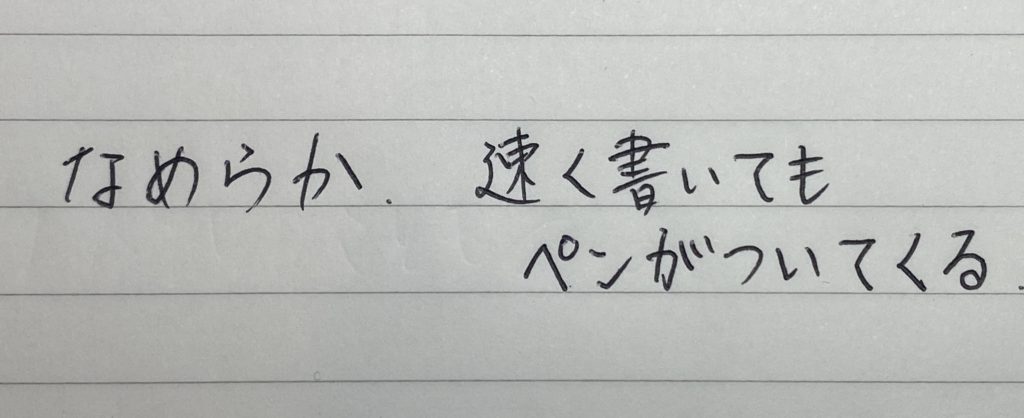 なめらか. 速く書いても
ペンがついてくる.